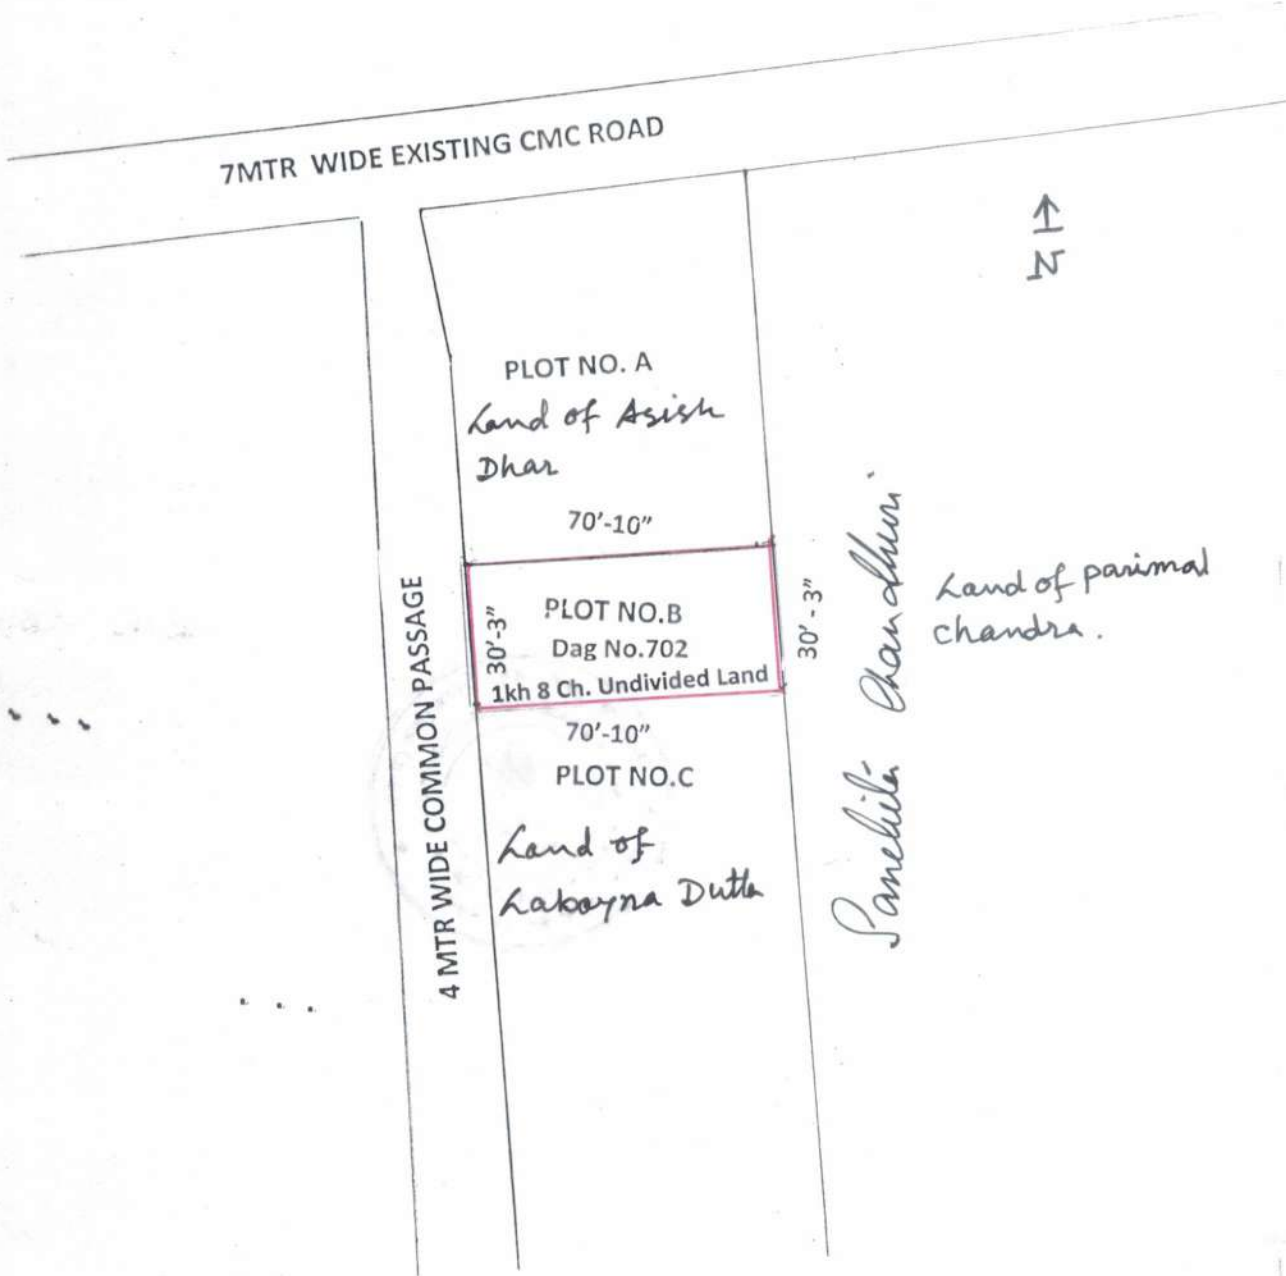 7MTR WIDE EXISTING CMC ROAD
N
PLOT NO. A
Land of Asish
Dhar
70'-10"
4 MTR WIDE COMMON PASSAGE
30'-3"
PLOT NO.B
Dag No.702
1kh 8 Ch. Undivided Land
30'-3"
70'-10"
PLOT NO.C
Land of
Labayna Dutta
Sanchita Chaudhuri
Land of parimal
chandra.